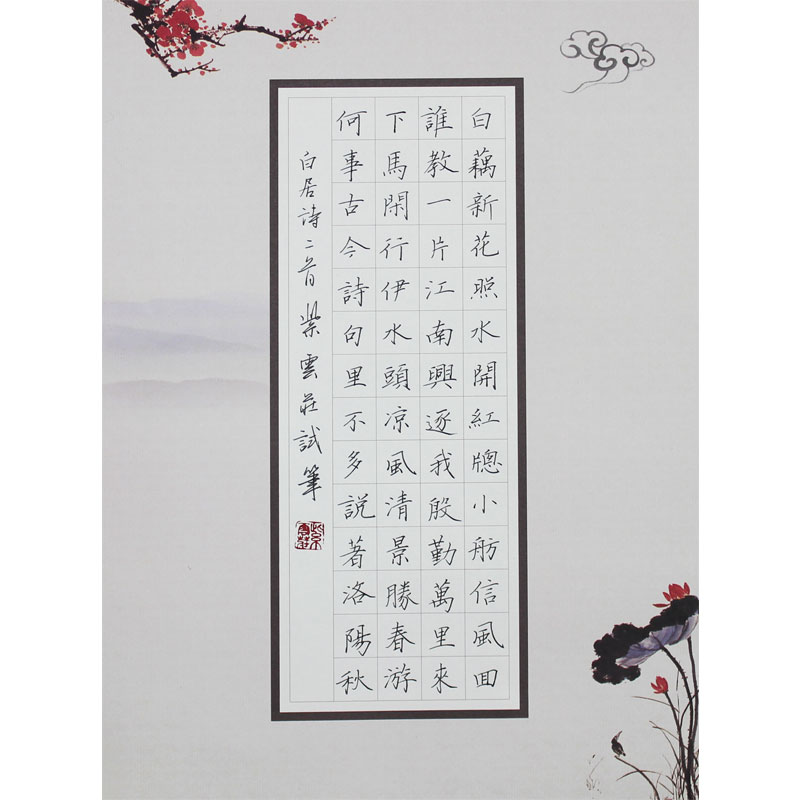 白藕新花照水開紅牕小舫信風回
誰教一片江南興逐我殷勤萬里來
下馬閑行伊水頭凉風清景勝春游
何事古今詩句里不多説著洛陽秋
白居詩二首紫雲莊試筆